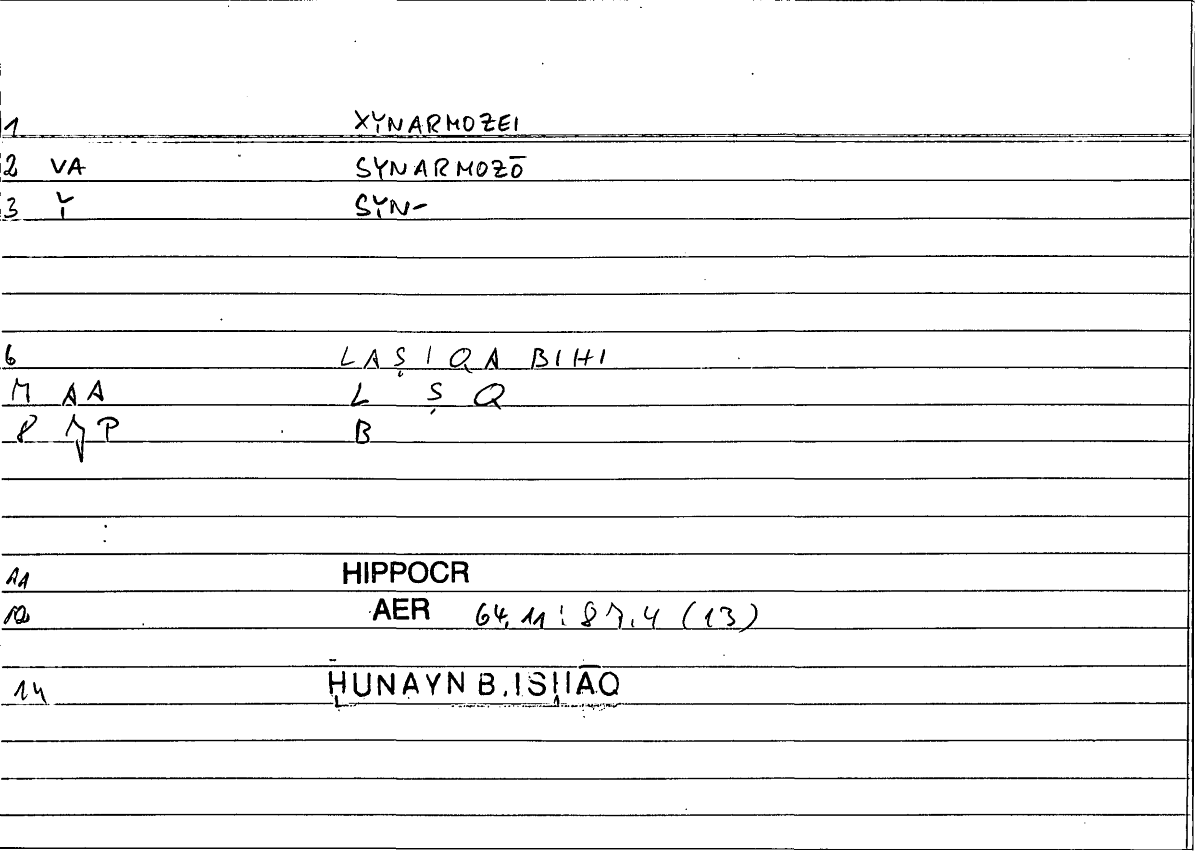 1 XY̆NARMOZEI
2 VA SYNARMOZŌ
3 Y̆ SY̆N-
6 LAṢIQA BIHI
7 AA L Ṣ Q
8 P B
11 HIPPOCR
12 AER 64,11 : 87,4 (13)
14 ḤUNAYN B. ISḤĀQ